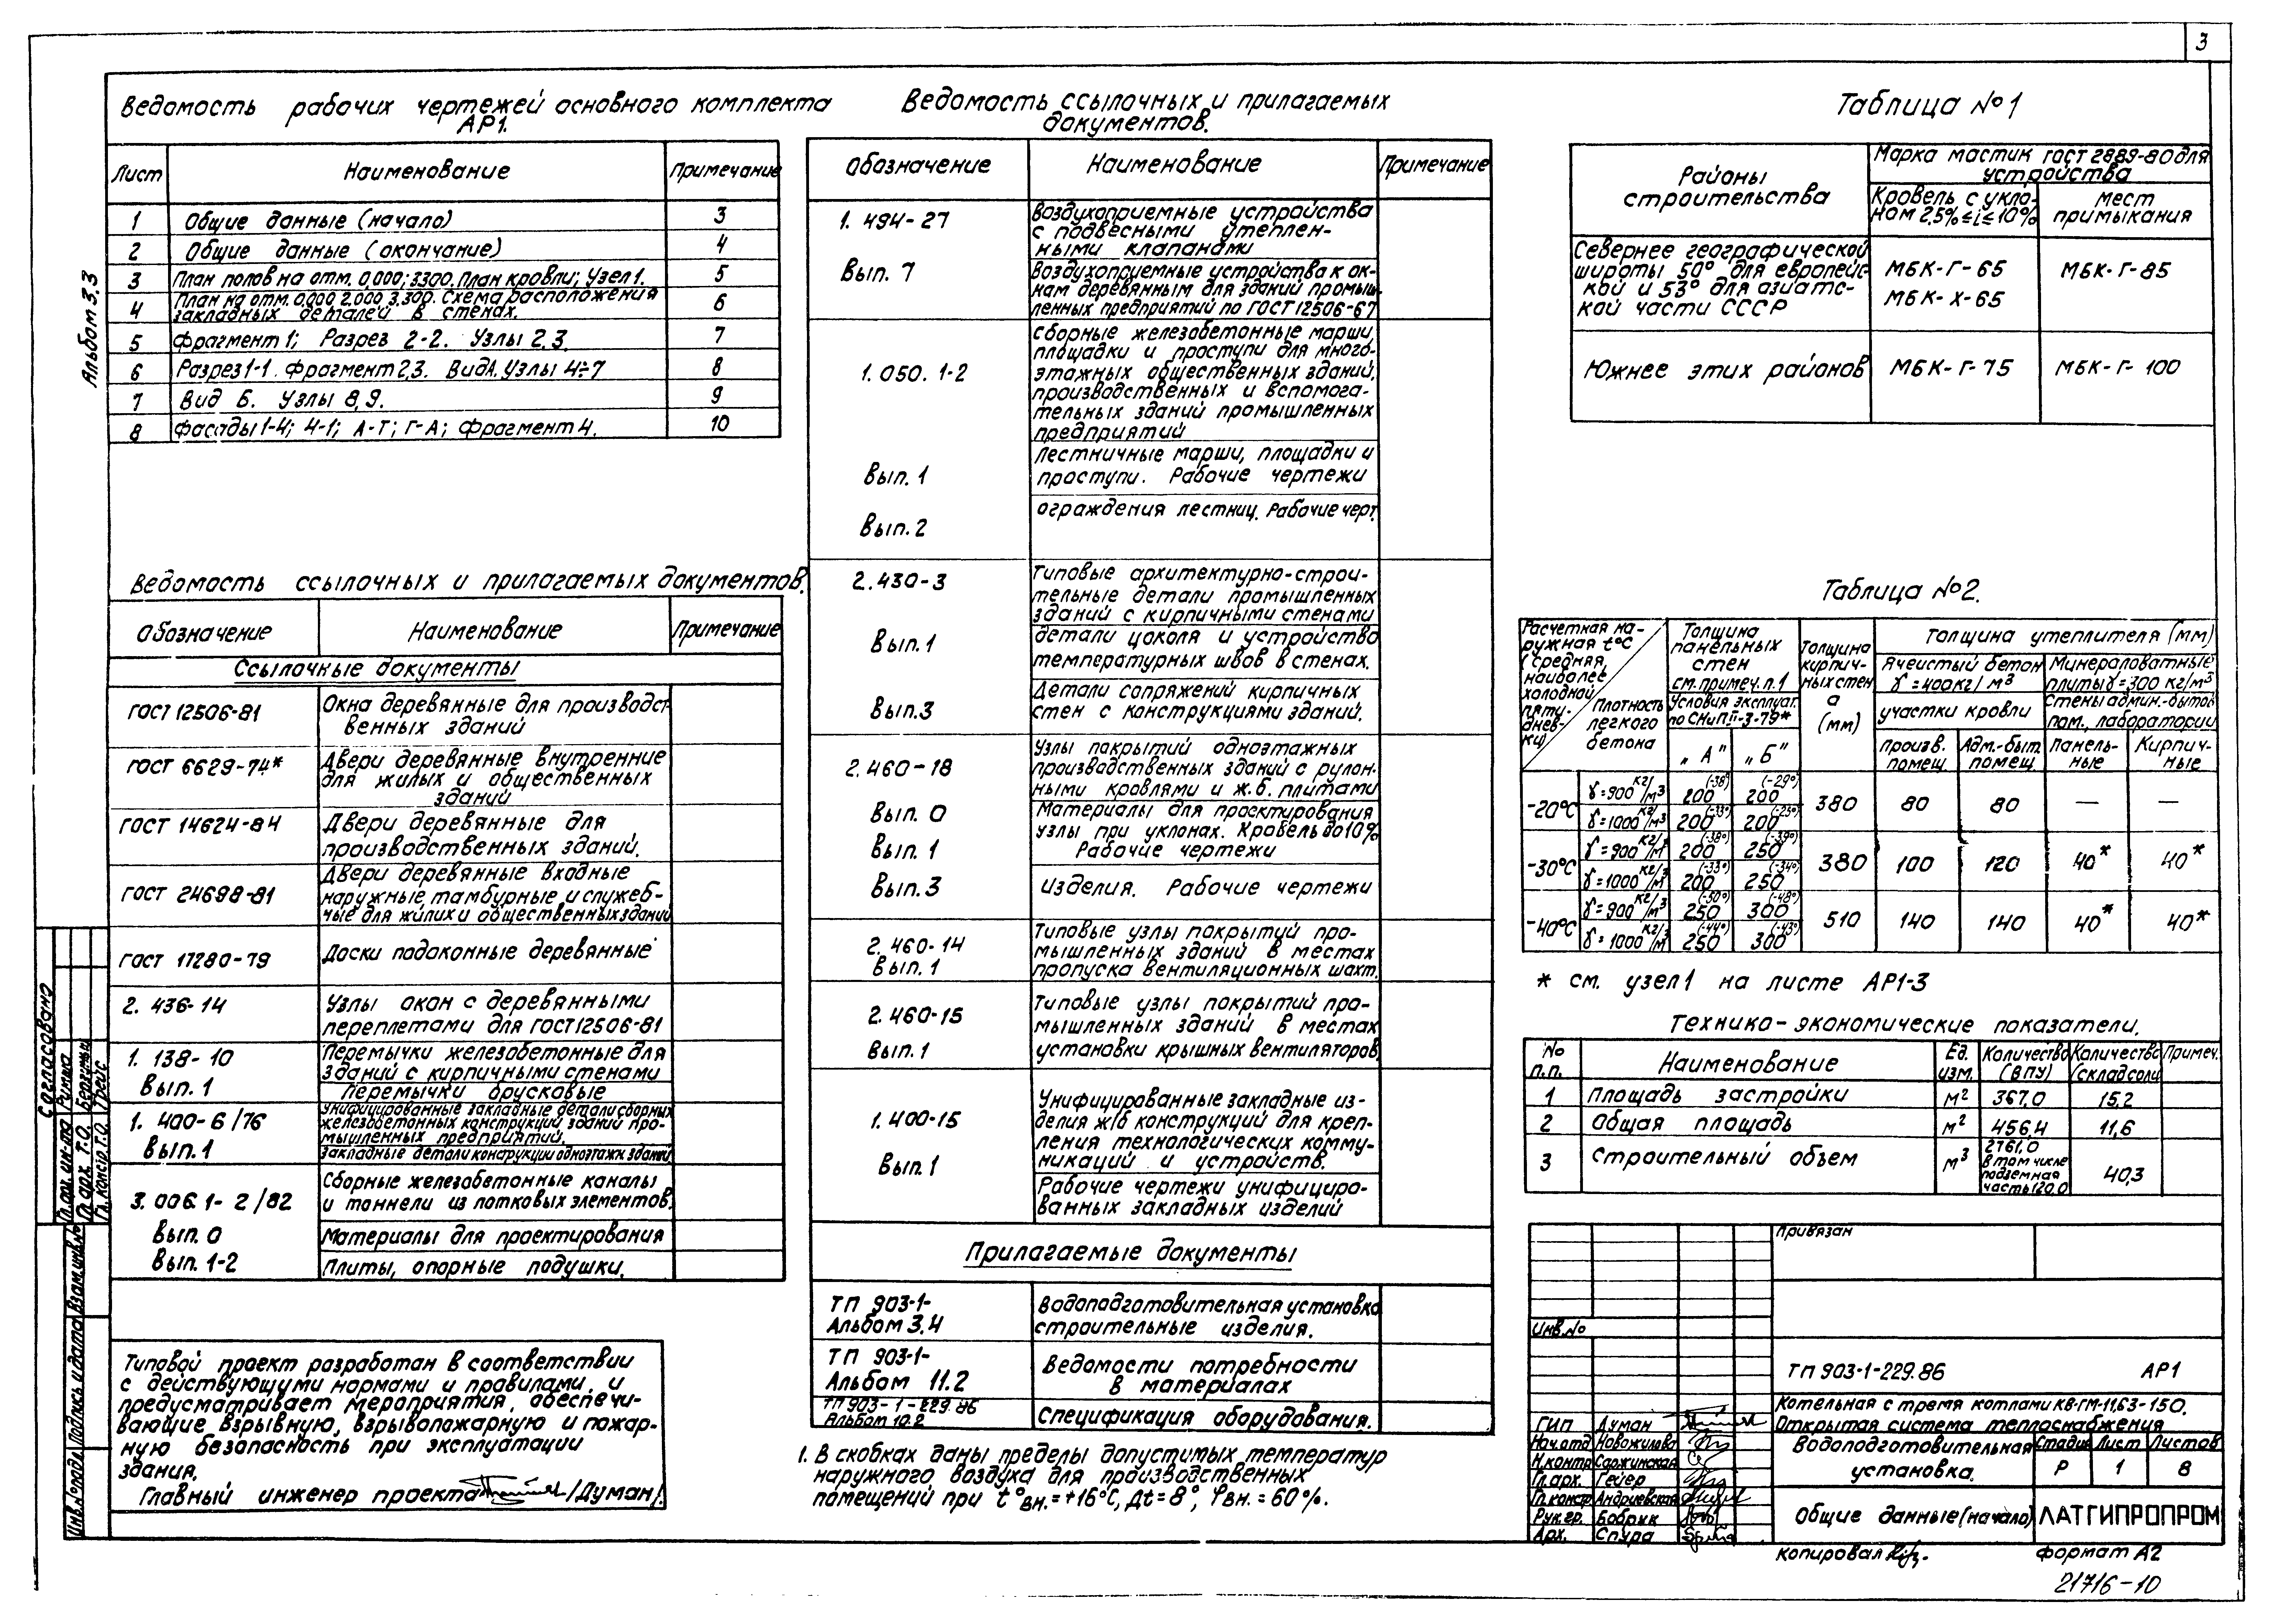 3
Альбом 3.3
Ведомость рабочих чертежей основного комплекта
АР1.
Лист
Наименование
Примечание
1 Общие данные (начало) 3
2 Общие данные (окончание) 4
3 План полов на отм. 0,000; 3300. План кровли; Узел 1. 5
4 План на отм. 0,000 2.000 3,300. Схема расположения
закладных деталей в стенах. 6
5 Фрагмент 1; Разрез 2-2. Узлы 2.3. 7
6 Разрез 1-1. Фрагмент 2,3. Вид А. Узлы 4÷7 8
7 Вид Б. Узлы 8,9. 9
8 Фасады 1-4; 4-1; А-Г; Г-А; Фрагмент 4. 10
Ведомость ссылочных и прилагаемых документов.
Обозначение
Наименование
Примечание
Ссылочные документы
ГОСТ 12506-81
Окна деревянные для производст
венных зданий
ГОСТ 6629-74*
Двери деревянные внутренние
для жилых и общественных
зданий
ГОСТ 14624-84
Двери деревянные для
производственных зданий.
ГОСТ 24698-81
Двери деревянные входные
наружные тамбурные и служеб-
ные для жилих и общественных зданий
ГОСТ 17280-79
Доски подоконные деревянные
2. 436-14
Узлы окон с деревянными
переплетами для ГОСТ 12506-81
1. 138-10
Вып. 1
Перемычки железобетонные для
зданий с кирпичными стенами
Перемычки брусковые
1. 400-6/76
Вып. 1
Унифицированные закладные детали сборных
железобетонных конструкций зданий про-
мышленных предприятий.
Закладные детали конструкции одноэтажн. зданий
3. 006.1-2/82
Вып. 0
Вып. 1-2
Сборные железобетонные каналы
и тоннели из лотковых элементов.
Материалы для проектирования
Плиты, опорные подушки.
Типовой проект разработан в соответствии
с действующими нормами и правилами, и
предусматривает мероприятия, обеспечи-
вающие взрывную, взрывопожарную и пожар-
ную безопасность при эксплуатации
здания.
Главный инженер проекта /Думан/.
Ведомость ссылочных и прилагаемых
документов.
Обозначение
Наименование
Примечание
1. 494-27
Воздухоприемные устройства
с подвесными утеплен-
ными клапанами
Вып. 7
Воздухоприемные устройства к ок-
нам деревянным для зданий промыш-
ленных предприятий по ГОСТ 12506-67
1. 050. 1-2
Сборные железобетонные марши,
площадки и проступи для много-
этажных общественных зданий,
производственных и вспомога-
тельных зданий промышленных
предприятий
Вып. 1
Лестничные марши, площадки и
проступи. Рабочие чертежи
Вып. 2
ограждения лестниц. Рабочие черт.
2.430-3
Типовые архитектурно-строи-
тельные детали промышленных
зданий с кирпичными стенами
Вып. 1
детали цоколя и устройство
температурных швов в стенах.
Вып. 3
Детали сопряжений кирпичных
стен с конструкциями зданий.
2.460-18
Узлы покрытий одноэтажных
производственных зданий с рулон-
ными кровлями и ж.б. плитами
Вып. 0
Материалы для проектирования
Вып. 1
узлы при уклонах. Кровель до 10%
Рабочие чертежи
Вып. 3
Изделия. Рабочие чертежи
2. 460-14
Вып. 1
Типовые узлы покрытий про-
мышленных зданий в местах
пропуска вентиляционных шахт.
2.460-15
Вып. 1
Типовые узлы покрытий про-
мышленных зданий в местах
установки крышных вентиляторов.
1. 400-15
Вып. 1
Унифицированные закладные из-
делия ж/б конструкций для креп-
ления технологических комму-
никаций и устройств.
Рабочие чертежи унифициро-
ванных закладных изделий
Прилагаемые документы
ТП 903-1-
Альбом 3.4
Водоподготовительная установка
строительные изделия.
ТП 903-1-
Альбом 11.2
Ведомости потребности
в материалах
ТП 903-1-229.86
Альбом 10.2
Спецификация оборудования.
1. В скобках даны пределы допустимых температур
наружного воздуха для производственных
помещений при t°вн.=+16°С, Δt=8°, φвн.=60%.
Таблица №1
Районы
строительства
Марка мастик ГОСТ 2889-80 для
устройства
Кровель с укло-
ном 2,5%≤i≤10%
мест
примыкания
Севернее географической
широты 50° для европейс-
кой и 53° для азиатс-
кой части СССР
МБК-Г-65
МБК-Х-65
МБК-Г-85
Южнее этих районов
МБК-Г-75
МБК-Г-100
Таблица №2.
Расчетная на-
ружная t°С
(средняя
наиболее
холодной
пяти-
днев-
ки)
Плотность
легкого
бетона
Толщина
панельных
стен
см. примеч. п. 1
Условия эксплуат.
по СНиП II-3-79*
„А" „Б"
Толщина
кирпич-
ных стен
а
(мм)
Толщина утеплителя (мм)
Ячеистый бетон
γ=400кг/м³
Минераловатные
плиты γ=300 кг/м³
участки кровли
Стены админ.-бытов.
пом., лаборатории
произв. помещ.
Адм.-быт. помещ.
Панель-
ные
Кирпич-
ные
-20°С γ=900 кг/м³ 200 (-38°) 200 (-29°) 380 80 80 — —
γ=1000 кг/м³ 200 (-33°) 200 (-25°)
-30°С γ=900 кг/м³ 200 (-38°) 250 (-39°) 380 100 120 40* 40*
γ=1000 кг/м 200 (-33°) 250 (-34°)
-40°С γ=900 кг/м³ 250 (-50°) 300 (-48°) 510 140 140 40* 40*
γ=1000 кг/м³ 250 (-44°) 300 (-43°)
* см. узел 1 на листе АР1-3
Технико-экономические показатели.
№ п.п.
Наименование
Ед. изм.
Количество (ВПУ)
Количество (склад соли)
Примеч.
1 Площадь застройки м² 367,0 15,2
2 Общая площадь м² 456,4 11,6
3 Строительный объем м³ 2761,0
в том числе
подземная
часть 120,0
40,3
Привязан
Инв.№
ТП 903-1-229.86 АР1
Котельная с тремя котлами КВ-ГМ-11,63-150.
Открытая система теплоснабжения
ГИП Думан
Нач.отд Новожилова
Н.контр Саржинская
Гл.арх. Гейер
Гл.констр Андриевская
Рук.гр. Бобрык
Арх. Спура
Водоподготовительная
установка.
Стадия Лист Листов
Р 1 8
Общие данные (начало)
ЛАТГИПРОПРОМ
Копировал
Формат А2
21716-10
Согласовано
Гл. арх. Т.О.
Гл. констр. Т.О.
Инв.№подл. Подпись и дата Взам.инв.№